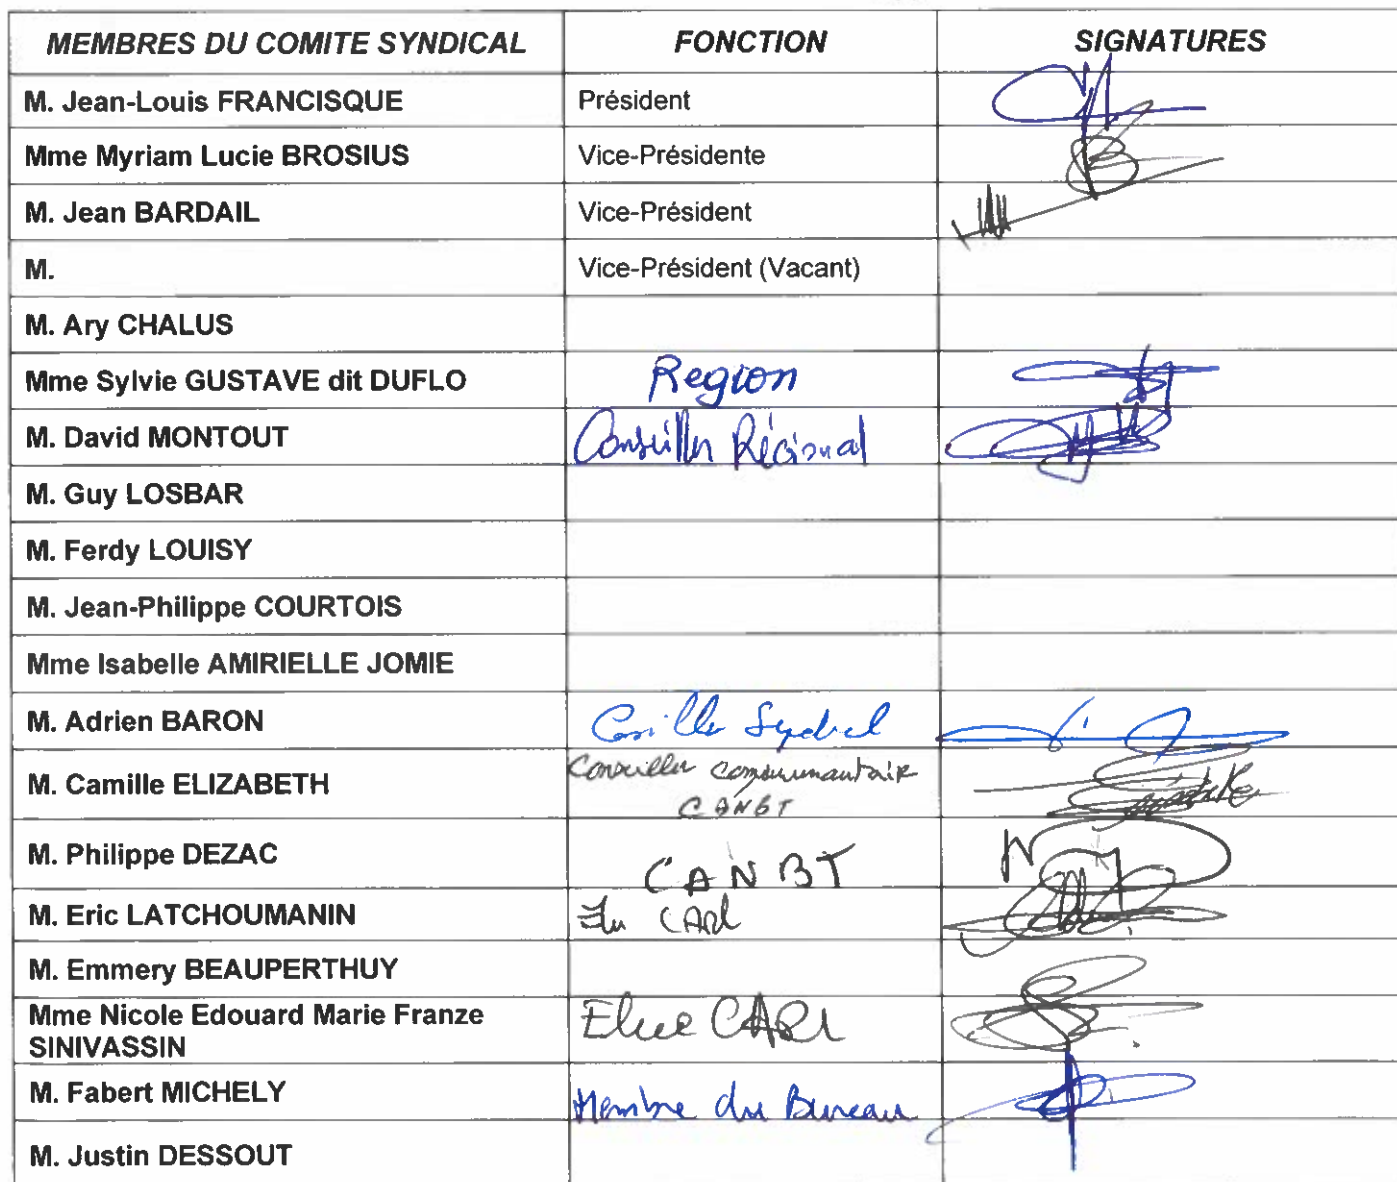 MEMBRES DU COMITE SYNDICAL FONCTION SIGNATURES
M. Jean-Louis FRANCISQUE Président
Mme Myriam Lucie BROSIUS Vice-Présidente
M. Jean BARDAIL Vice-Président
M. Vice-Président (Vacant)
M. Ary CHALUS
Mme Sylvie GUSTAVE dit DUFLO Region
M. David MONTOUT Conseiller Régional
M. Guy LOSBAR
M. Ferdy LOUISY
M. Jean-Philippe COURTOIS
Mme Isabelle AMIRIELLE JOMIE
M. Adrien BARON
M. Camille ELIZABETH Conseiller communautaire
CANBT
M. Philippe DEZAC CANBT
M. Eric LATCHOUMANIN Elu CARL
M. Emmery BEAUPERTHUY
Mme Nicole Edouard Marie Franze
SINIVASSIN Elue CARL
M. Fabert MICHELY Membre du Bureau
M. Justin DESSOUT